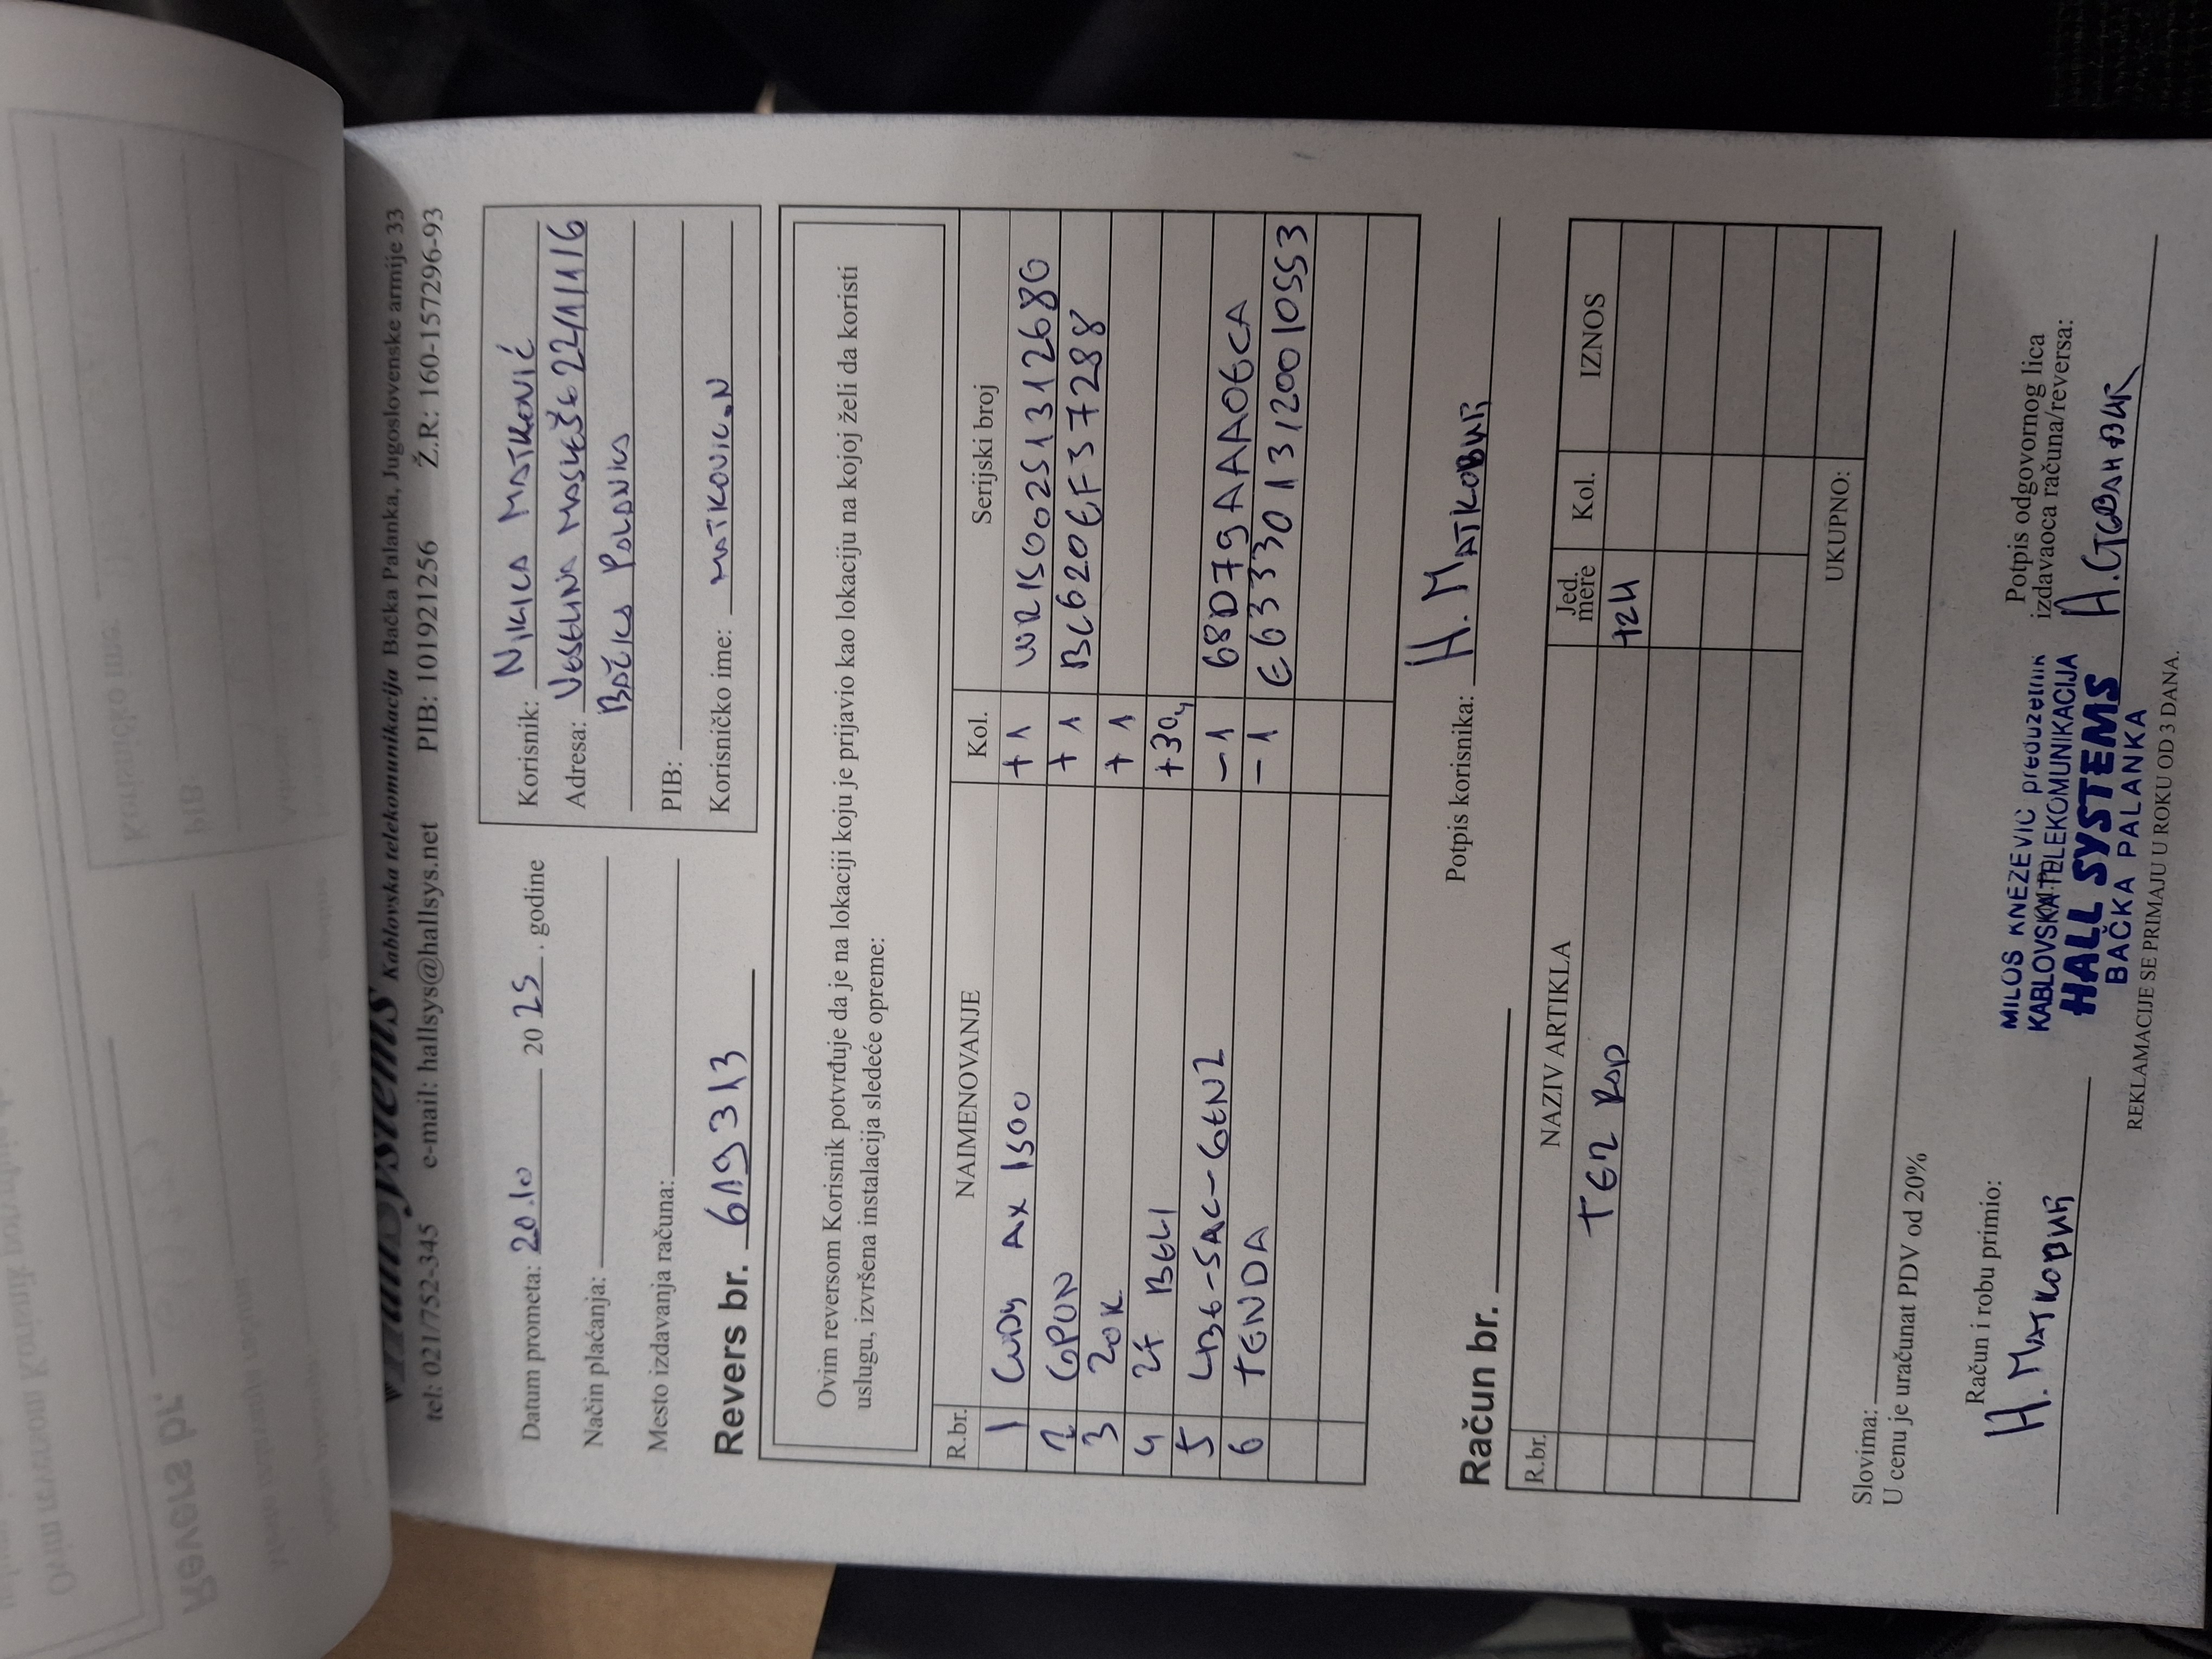 HallSystems Kablovska telekomunikacija Bačka Palanka, Jugoslovenske armije 33
tel: 021/752-345 e-mail: hallsys@hallsys.net PIB: 101921256 Ž.R.: 160-157296-93
Datum prometa: 20.10 2025. godine
Način plaćanja:
Mesto izdavanja računa:
Revers br. 619313
Korisnik: NIKICA MATKOVIĆ
Adresa: VESELINA MASLEŠE 22/1/1/6
BAČKA PALANKA
PIB:
Korisničko ime: MATKOVIC.N
Ovim reversom Korisnik potvrđuje da je na lokaciji koju je prijavio kao lokaciju na kojoj želi da koristi
uslugu, izvršena instalacija sledeće opreme:
R.br. NAIMENOVANJE Kol. Serijski broj
1 CUDY AX 1500 +1 WR1500251312680
2 GPON +1 BC620EF37288
3 ZOK +1
4 2F BELI +30
5 LBE-5AC-GEN2 -1 68D79AAA06CA
6 TENDA -1 E6333013120010553
Potpis korisnika: Н. МАТКОВИЋ
Račun br.
R.br. NAZIV ARTIKLA Jed. mere Kol. IZNOS
TER RAD
UKUPNO:
Slovima:
U cenu je uračunat PDV od 20%
Račun i robu primio:
Н. МАТКОВИЋ
MILOŠ KNEŽEVIĆ preduzetnik
KABLOVSKA TELEKOMUNIKACIJA
HALL SYSTEMS
BAČKA PALANKA
M.P.
Potpis odgovornog lica
izdavaoca računa/reversa:
REKLAMACIJE SE PRIMAJU U ROKU OD 3 DANA.